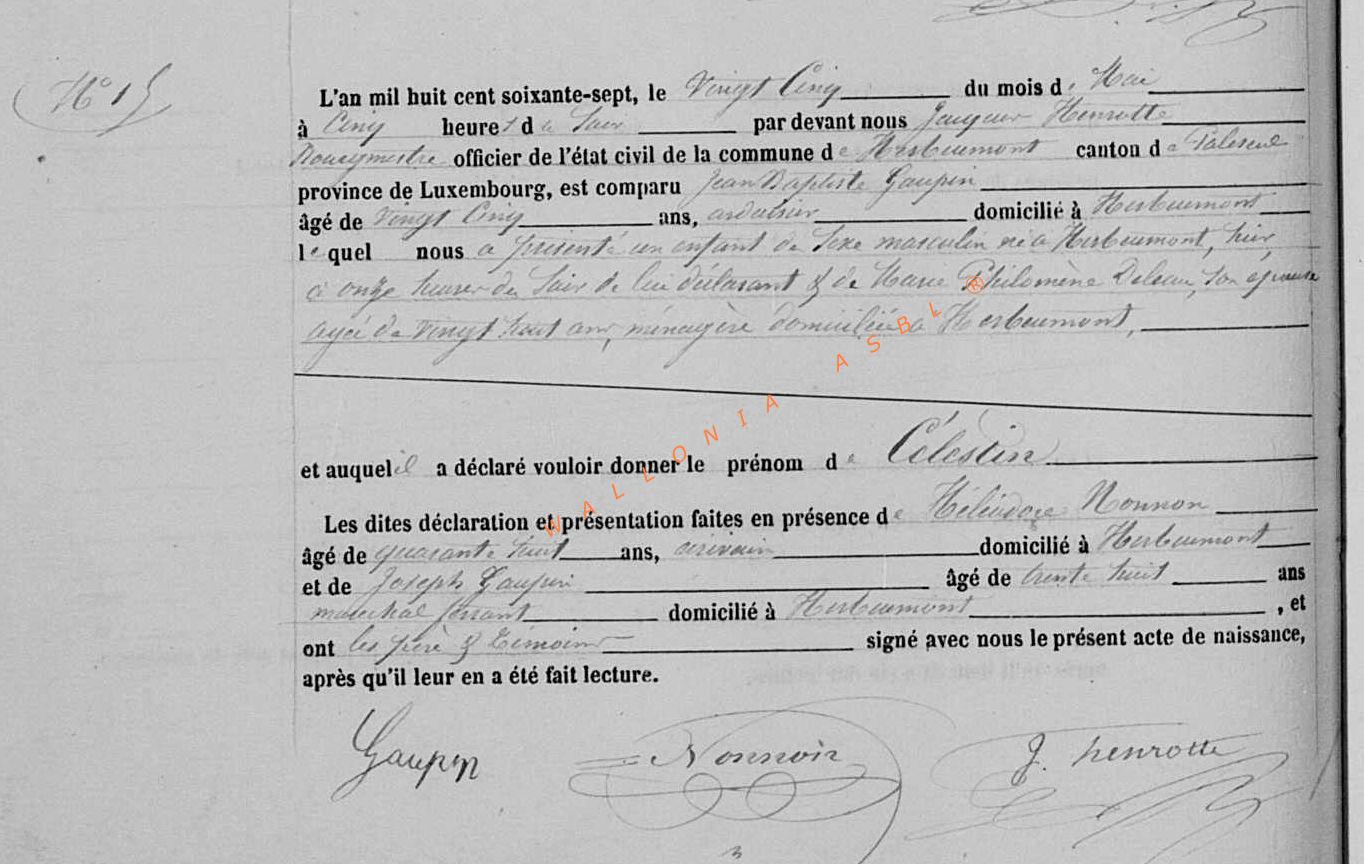 N° 15
L'an mil huit cent soixante-sept, le Vingt Cinq du mois de Mai
à Cinq heures du Soir par devant nous Jacques Henrotte
Bourgmestre officier de l'état civil de la commune de Herbeumont canton de Paliseul
province de Luxembourg, est comparu Jean Baptiste Gaupin
âgé de Vingt Cinq ans, ardoisier domicilié à Herbeumont
lequel nous a présenté un enfant de Sexe masculin né à Herbeumont, hier,
à onze heures du Soir de lui déclarant & de Marie Philomène, Son épouse
agée de Vingt huit ans, ménagère domiciliée à Herbeumont,
et auquel il a déclaré vouloir donner le prénom de Célestin
Les dites déclaration et présentation faites en présence de Héliodore Nonnon
âgé de quarante huit ans, écrivain domicilié à Herbeumont
et de Joseph Gaupin âgé de trente huit ans
maréchal ferrant domicilié à Herbeumont, et
ont les père & témoins signé avec nous le présent acte de naissance,
après qu'il leur en a été fait lecture.
Gaupin Nonnon J. henrotte
WALLONIA ASBL ®